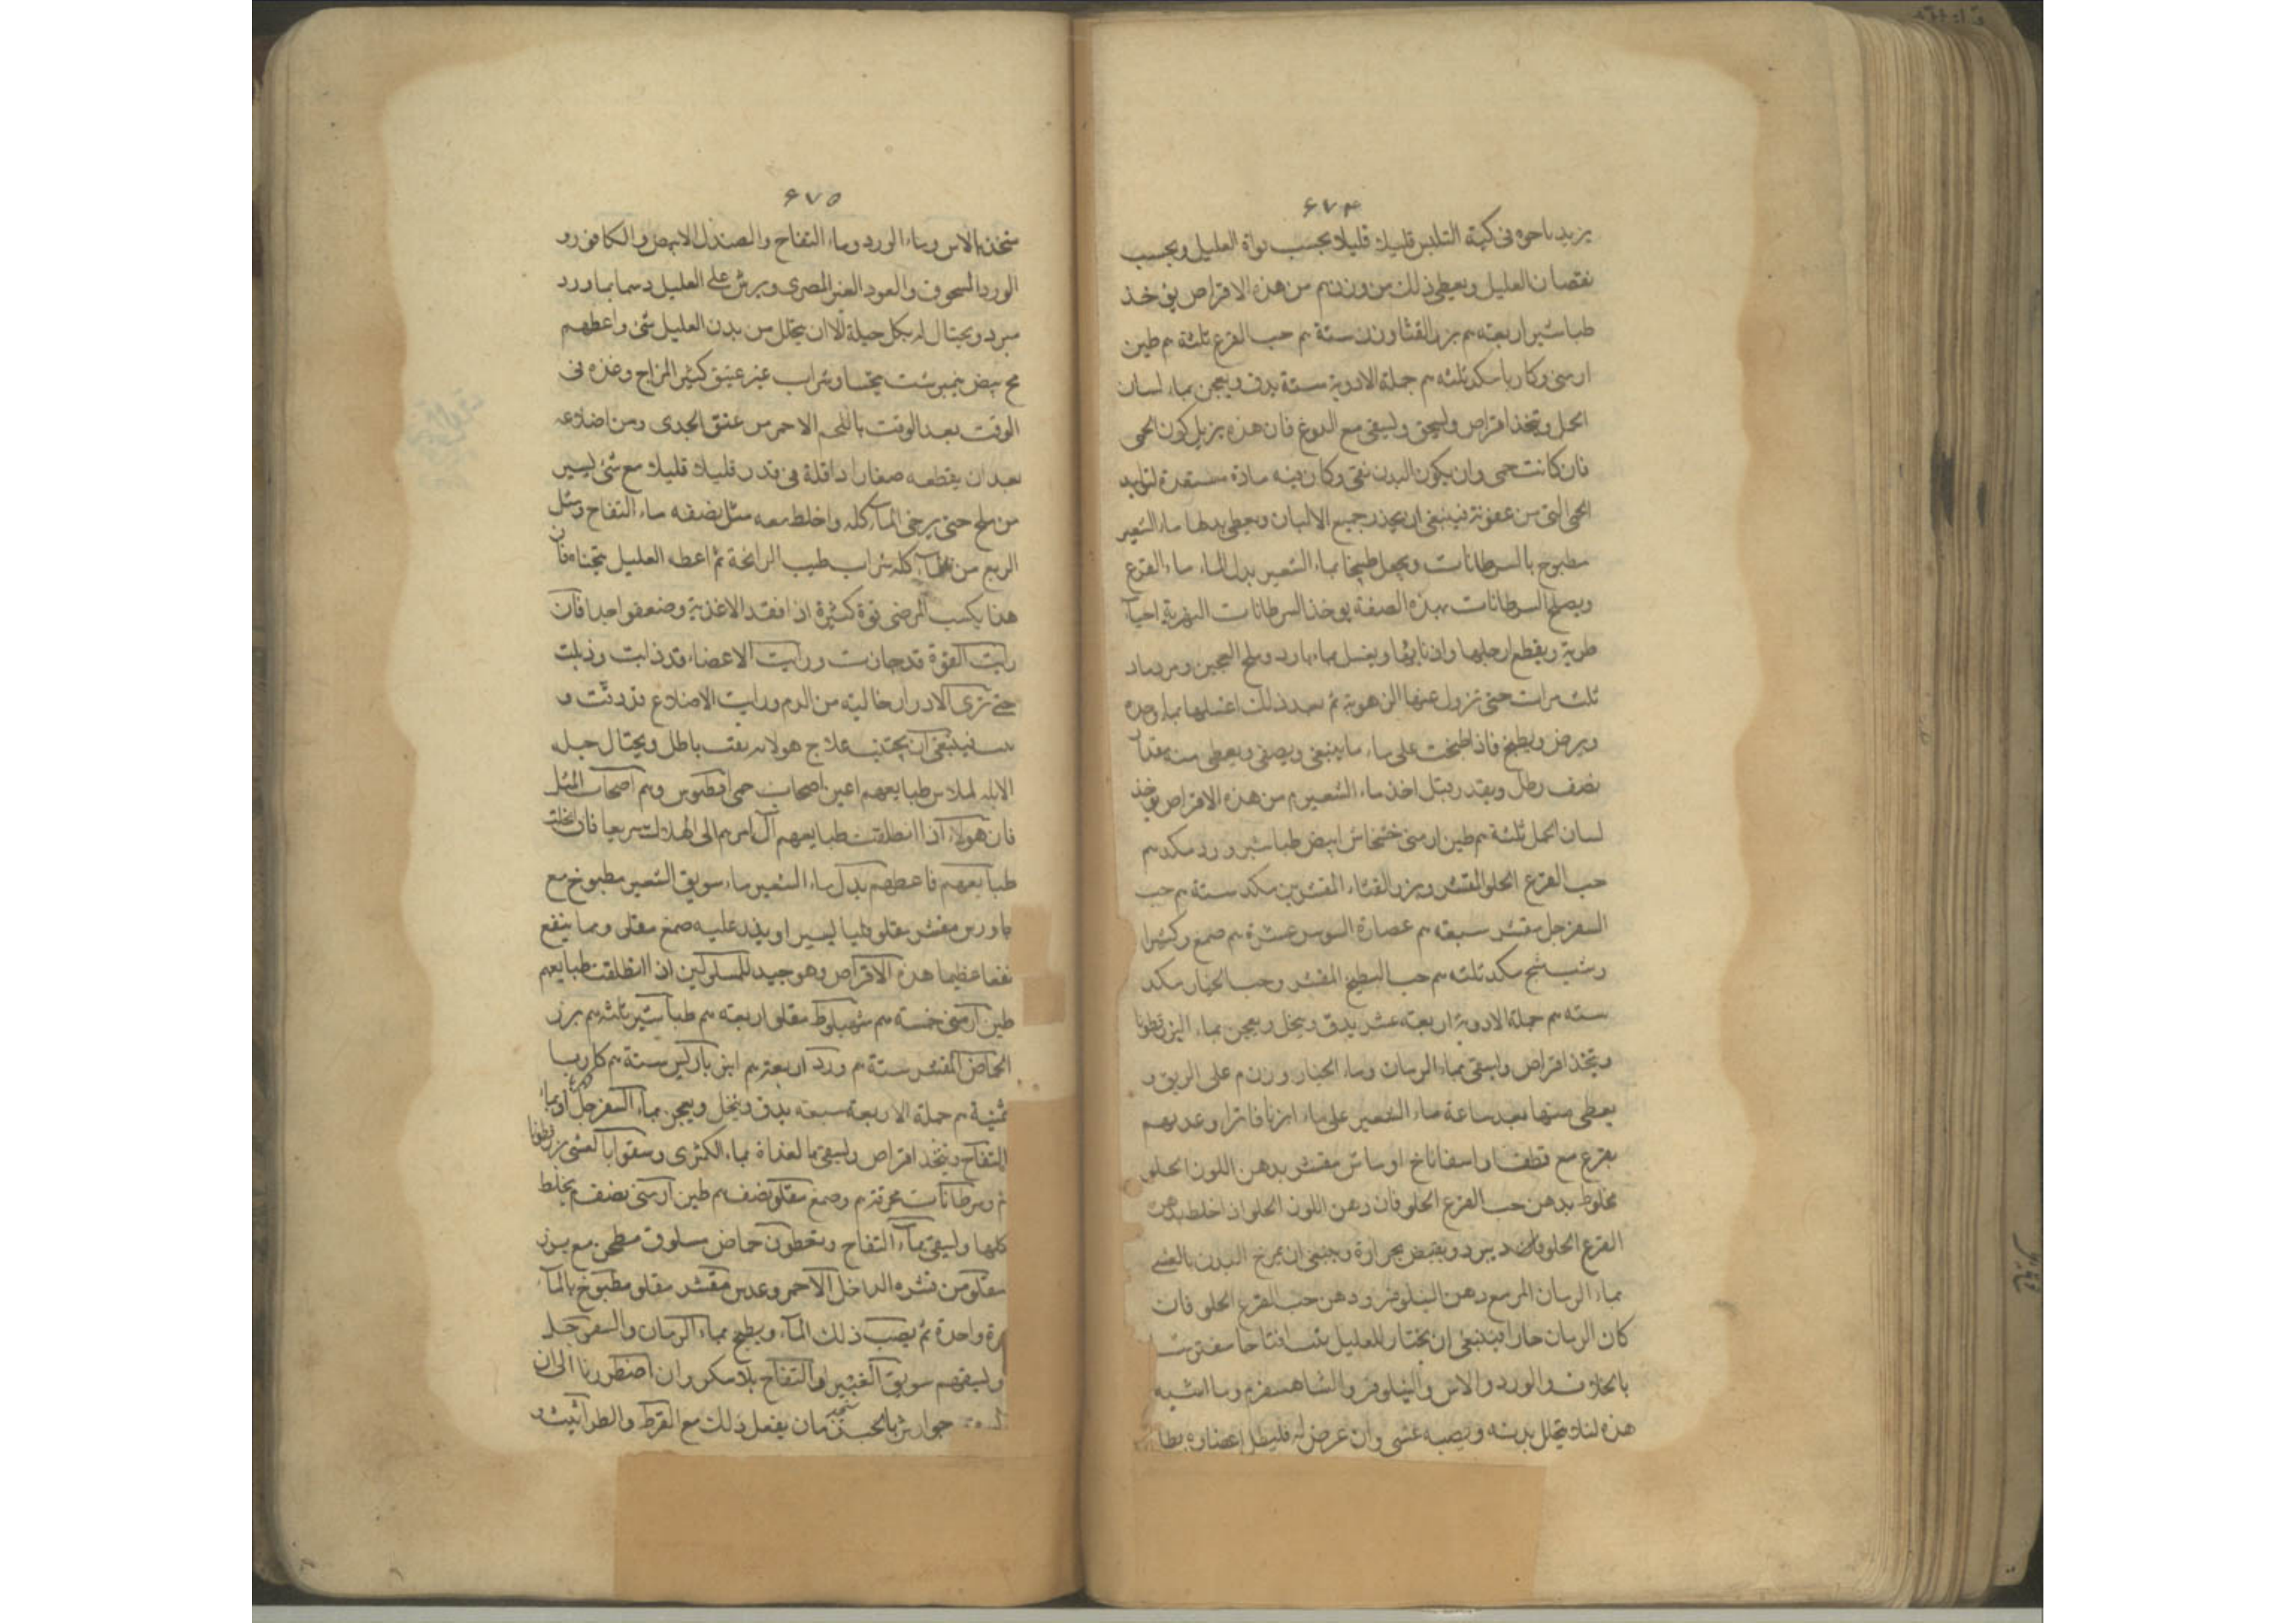 ۶۷۴
يزيد ماحوه فى كمية اللبن قليلا قليلا بحسب قوة العليل وبحسب
نقصان العليل ويعطى ذلك من وزن م من هذه الاقراص يؤخذ
طباشير اربعة م بزر القثا وزن ستة م حب القرع ثلثة م طين
ارمنى وكاربا مكد ثلثه م جملة الادوية ستة يدق ويعجن بماء لسان
الحمل ويتخذ اقراص وليسحق وليسقى مع الدوغ فان هذه يزيل كون الحمى
فان كانت حمى وان يكون البدن نقى وكان فيه مادة مستعدة لتوليد
الحمى التى من عفونة فينبغى ان يحذر جميع الالبان ويعطى بدلها ماء الشعير
مطبوخ بالسرطانات ويجعل طبيخنا بماء الشعير بدل الماء ماء القرع
ويصلح السرطانات بهذه الصفة يوخذ السرطانات النهرية احيآ
طرية ويقطع ارجلها واذنابها ويغسل بماء بارد وملح العجين ورماد
ثلث مرات حتى تزول عنها الزهومة ثم بعد ذلك اغسلها بماء وحده
ويرض ويطبخ فاذا طبخت على ماء ما ينبغى ويصفى ويعطى منه مقدار
نصف رطل ويقدر وقبل اخذ ماء الشعير م من هذه الاقراص يؤخذ
لسان الحمل ثلثة م طين ارمنى خشخاش ابيض طباشير ورد مكد م
حب القرع الحلو المقشر وبزر القثاء المقشرين مكد ستة م حب
السفرجل مقشر سبعة م عصارة السوس عشرة م صمغ وكثيرا
مكد ثلثه م حب البطيخ المقشر وحب الخيار مكد
ستة م جملة الادوية اربعة عشر يدق وينخل ويعجن بماء البزرقطونا
ويتخذ اقراص وليسقى بماء الرمان وماء الخيار وزن م على الريق و
يعطى منها بعد ساعة ماء الشعير على ماء ارنا فاترا وغديهم
بقرع مع قطف واسفاناخ او ماش مقشر بدهن اللوز الحلو
مخلوط بدهن حب القرع الحلو فان دهن اللوز الحلو اذا خلط بدهن
القرع الحلو يبرد ويقبض بحرارة وينبغى ان يمرخ البدن بالعشى
بماء الرمان المر مع دهن النيلوفر ودهن حب القرع الحلو فان
كان الزمان حارا فينبغى ان يختار للعليل بيتا مفترشا
بالخلاف والورد والاس والنيلوفر والشاهسفرم وما اشبه
هذه لئلا يتحلل بدنه ويصيبه غشى وان عرض له فليطل اعضاوه بطلا
۶۷۵
متخذ بالاس وماء الورد وماء التفاح والصندل الابيض والكافور و
الورد المسحوق والعود العنبر المصرى ويرش على العليل دسما بماورد
مبرد ويحتال له بكل حيلة الا ان يتحلل من بدن العليل شئ واعطهم
مح بيض نيمبرشت يتحسا وشراب غير عتيق كثير المزاج وغذه فى
الوقت بعد الوقت باللحم الاحمر من عنق الجدى ومن اضلاعه
بعد ان يقطعه صغارا داقلة فى قدر قليلا قليلا مع شئ يسير
من ملح حتى يرخى الماء كله واخلط معه مثل نصفه ماء التفاح ومثل
الربع من كله شراب طيب الرائحة ثم اعط العليل يتحسا فان
هذا يكسب المرضى قوة كثيرة اذا فقد الاغذية وضعفوا جدا فان
رايت القوة قد خارت ورايت الاعضاء قد ذابت وذبلت
حتى ترى الادرار خالية من الدم ورايت الاضلاع قد دقت و
فينبغى ان يجتنب علاج هولاء بتعب باطل ويحتال
لملاس طبايعهم اعنى اصحاب حمى اقطيقوس وهم اصحاب السل
فان هولاء اذا انطلقت طبايعهم آل امرهم الى الهلاك سريعا فان انحلت
طبايعهم فاعطهم بدل ماء الشعير ماء سويق الشعير مطبوخ مع
جاورس مقشر مقلو قليا يسيرا ويذر عليه صمغ مقلى ومما ينفع
نفعا عظيما هذه الاقراص وهو جيد للمسلولين اذا انطلقت طبايعهم
طين ارمنى خمسة م شهبلوط مقلى اربعة م طباشير ثلثة م بزر
الحماض المقشر ستة م ورد اربعة م انبرباريس ستة م كاربا
ثمنية م جملة الاربعة سبعة يدق وينخل ويعجن بماء السفرجل او بماء
التفاح ويتخذ اقراص وليسقى بالغداة بماء الكثرى وسقوا بالعشى بزرقطونا
م وسرطانات محرقة م وصمغ مقلو نصف م طين ارمنى نصف م يخلط
كلها وليسقى بماء التفاح ويعطون حماض مسلوق مطجن مع بزر
مقلو من قشره الداخل الاحمر وعدس مقشر مقلو مطبوخ بالماء
مرة واحدة ثم يصب ذلك الماء ويطبخ بماء الرمان والسفرجل
وليسقهم سويق الغبيرا والتفاح بلا سكر وان اضطررنا الى ان
جوارش يفعل ذلك مع القرط والطراثيث و